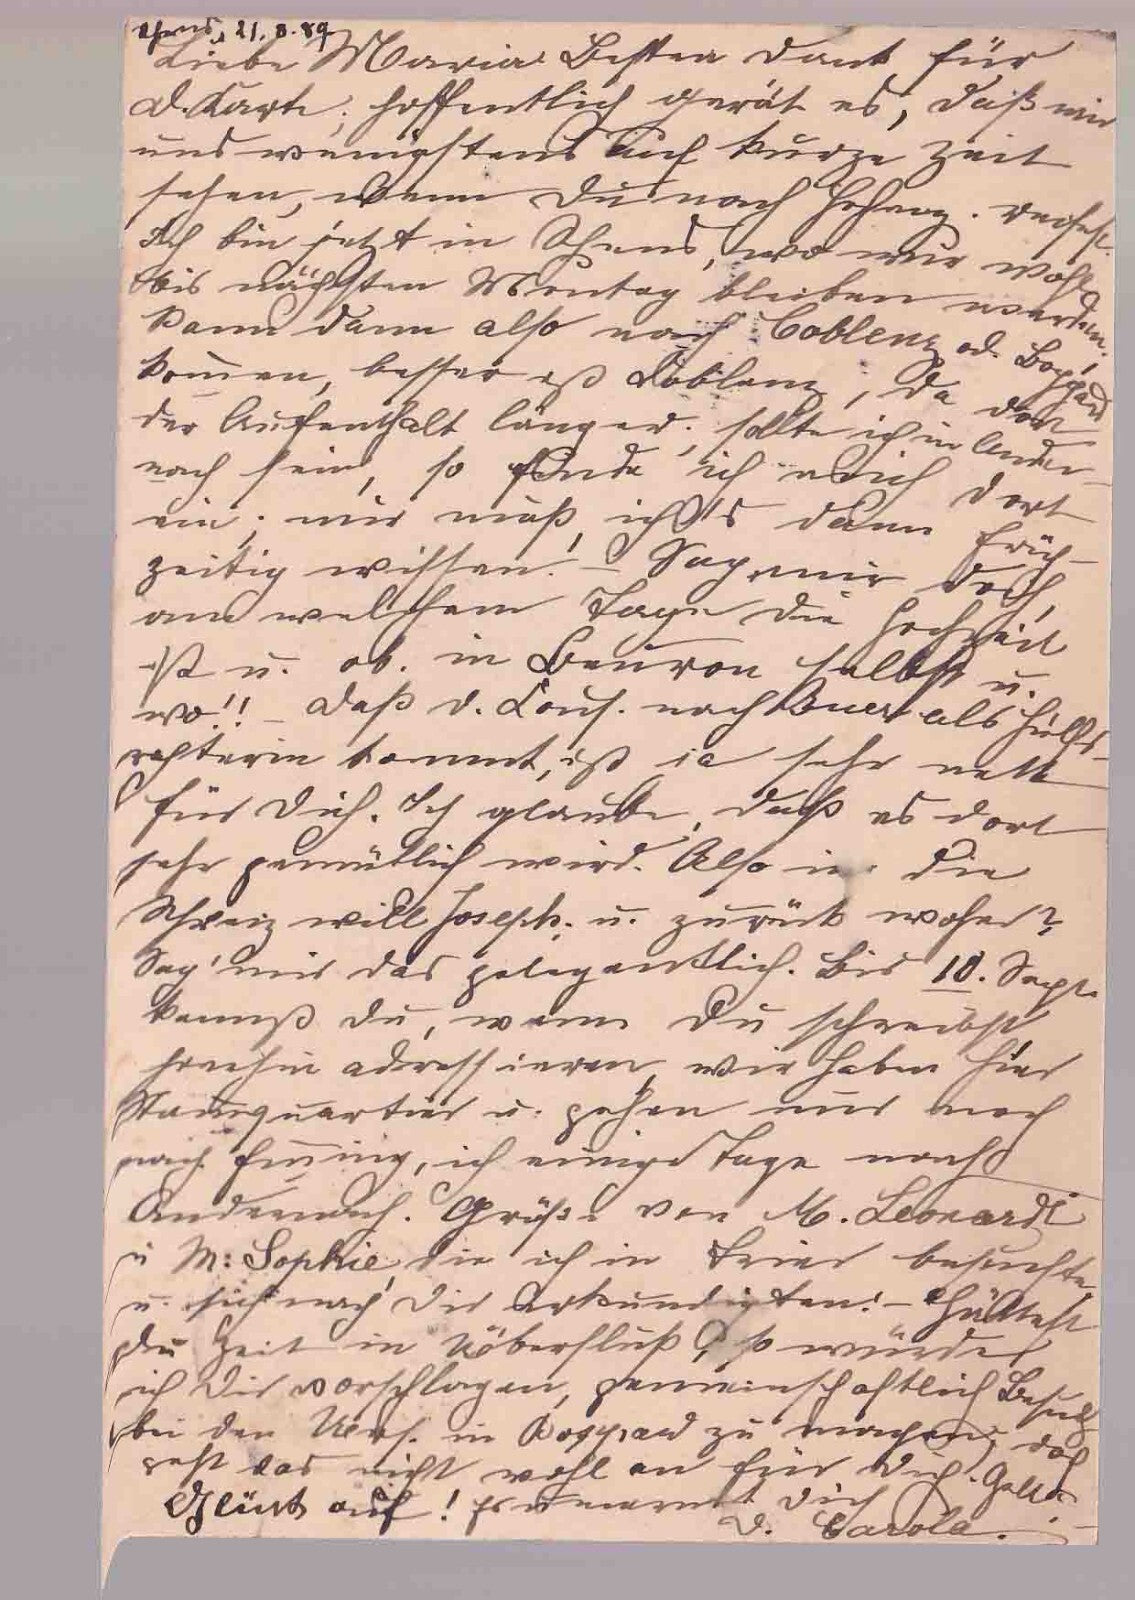 Rhens, 21.8.89
Liebe Maria! Besten Dank für
d. Karte; hoffentlich gerät es, daß wir
uns wenigstens auf kurze Zeit
sehen, wenn Du nach
Ich bin jetzt in Rhens, wo wir wohl
bis nächsten Montag bleiben werden.
Kann dann also nach Coblenz od. Boppard
kommen, besser ist Coblenz, da dort
der Aufenthalt länger; sollte ich in Ander-
nach sein, so finde ich mich dort
ein; nur muß ich's dann früh-
zeitig wissen! – Sag mir doch,
an welchem Tage die Hochzeit
ist u. ob in Beuron selbst u.
wo!! – Daß d. Cous. nach als Hülfs-
kommt, ist ja sehr nett
für Dich. Ich glaube, daß es dort
sehr gemütlich wird. Also in die
Schweiz will Joseph u. zurück woher?
Sag' mir das gelegentlich. Bis 10. Sept.
kannst Du, wenn Du schreibst
hierhin adressieren, wir haben hier
Standquartier u. gehen nur noch
nach, ich einige Tage nach
Andernach. Grüße von M. Leonardi
u M. Sophie, die ich in Trier besuchte
u. sich nach Dir erkundigten! – Hättest
Du Zeit in Überfluß, so würde
ich Dir vorschlagen, gemeinschaftlich Besuch
bei den in Boppard zu machen, doch
geht das nicht wohl an für Dich. Gelt?
Glück auf! Es umarmt Dich
D. Carola.